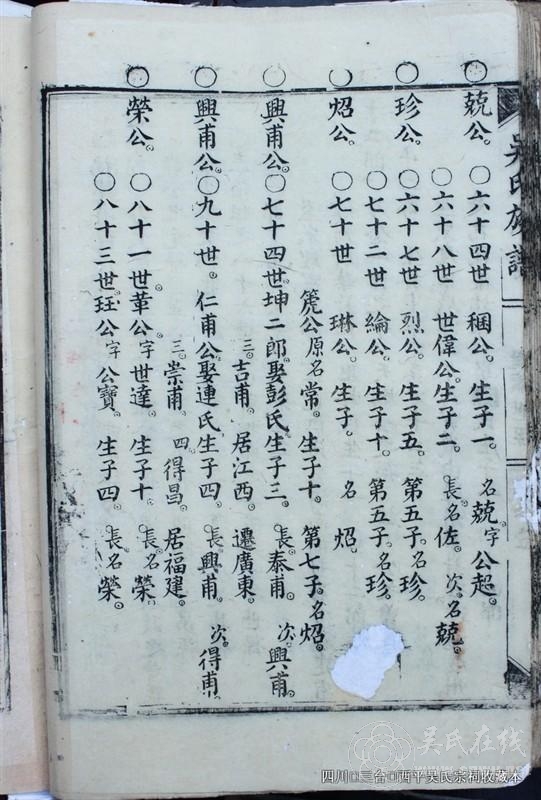 吳氏族譜
兢公。 ○六十四世 稛公。 生子一。 名兢。字公起。
○六十八世 世偉公。 生子二。 長名佐。 次名兢。
珍公。 ○六十七世 烈公。 生子五。 第五子。名珍。
○七十二世 綸公。 生子十。 第五子。名珍。
炤公。 ○七十世 琳公。 生子。 名炤。
箎公原名常。 生子十。 第七子。名炤。
○興甫公。 ○七十四世。坤二郎。娶彭氏。生子三。 長泰甫。 次興甫。
三。吉甫。 居江西。 遷廣東。
○興甫公。 ○九十世。 仁甫公。娶連氏。生子四。 長興甫。 次得甫。
三。崇甫。 四。得昌。 居福建。
○榮公。 ○八十一世。華公。字世達。 生子十。 長名榮。
○八十三世。珏公。字公寶。 生子四。 長名榮。
吴氏在线
四川□三台□西平吴氏宗祠收藏本